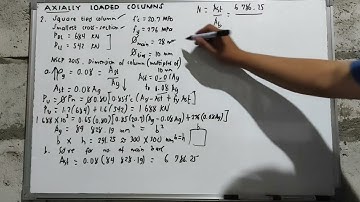 AXIALLY LOADED COLUMNS
2. Square tied column
Smallest cross-section
PDL = 684 KN
PLL = 542 KN
f'c = 20.7 MPa
fy = 276 MPa
Ømain = 28 mm
Øtie = 10 mm
NSCP 2015, Dimension of column (multiples of 10 mm)
ρ = 0.08 = Ast / Ag
Ast = 0.08 Ag
Pu = Ø Pn = Ø 0.80 [0.85 f'c (Ag - Ast) + fy Ast]
Pu = 1.2(684) + 1.6(542) = 1 688 KN
1 688 x 10³ = 0.65 (0.80) [0.85 (20.7) (Ag - 0.08 Ag) + 276 (0.08 Ag)]
Ag = 89 828.19 mm² = b²
b x h = 299.25 ≈ 300 x 300 mm
b = h
b
h. Solve for no. of main bars
Ast = 0.08 (89 828.19) = 6 786.25
N = Ast / Ab = 6 786.25